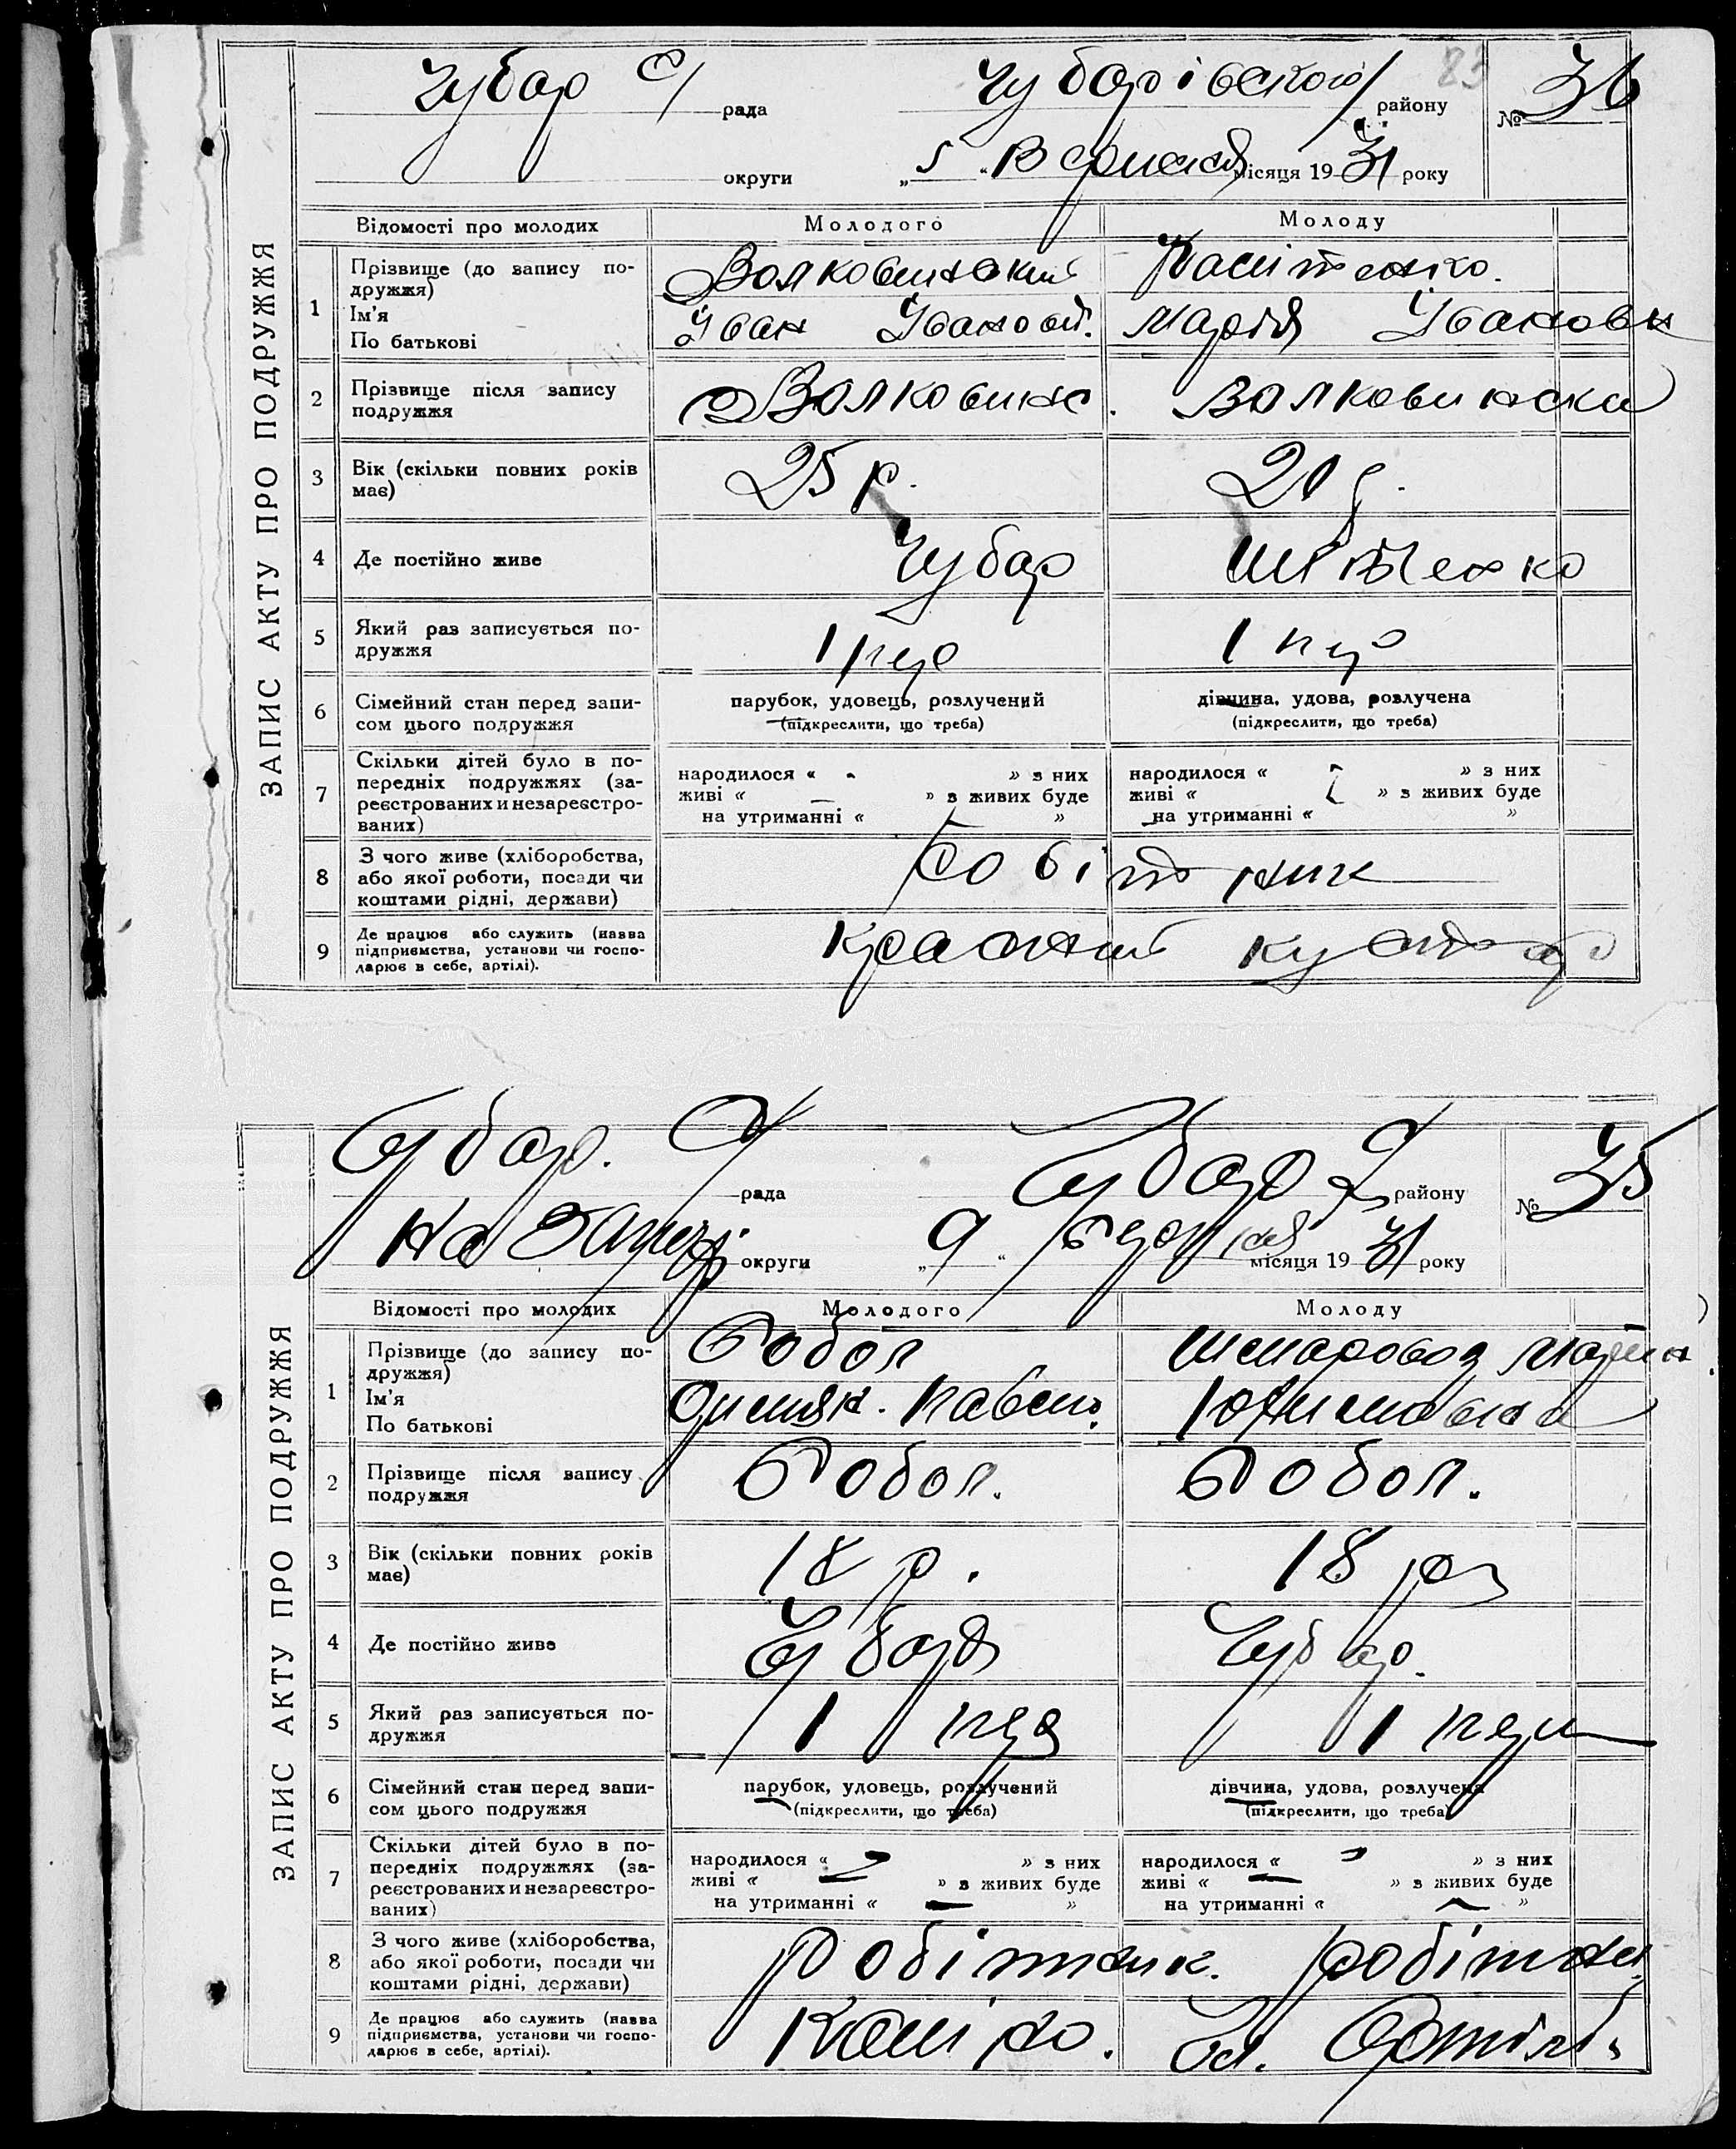 Чубар с/ рада Чубарівського району № 36
округи „ 5 “ Вересня місяця 19 31 року
ЗАПИС АКТУ ПРО ПОДРУЖЖЯ
Відомості про молодих Молодого Молоду
1 Прізвище (до запису по-
дружжя)
Ім'я
По батькові
Волковинский
Іван Іванов.
Марія Івановн
2 Прізвище після запису
подружжя
Волковинс. Волковински
3 Вік (скільки повних років
має)
25 р. 20 р.
4 Де постійно живе Чубар
5 Який раз записується по-
дружжя
1 пер 1 пер
6 Сімейний стан перед запи-
сом цього подружжя
парубок, удовець, розлучений
(підкреслити, що треба)
дівчина, удова, розлучена
(підкреслити, що треба)
7 Скільки дітей було в по-
передніх подружжях (за-
реєстрованих и незареєстро-
ваних)
народилося « - » з них
живі « — » з живих буде
на утриманні « »
народилося « » з них
живі « » з живих буде
на утриманні « »
8 З чого живе (хліборобства,
або якої роботи, посади чи
коштами рідні, держави)
робітник
9 Де працює або служить (назва
підприємства, установи чи госпо-
дарює в себе, артілі).
Красний кустар
Чубар. с/ рада Чубар району № 35
округи „ 9 “ вересня місяця 19 31 року
ЗАПИС АКТУ ПРО ПОДРУЖЖЯ
Відомості про молодих Молодого Молоду
1 Прізвище (до запису по-
дружжя)
Ім'я
По батькові
Робол
Шемаровоз
2 Прізвище після запису
подружжя
Робол. Робол.
3 Вік (скільки повних років
має)
18 р. 18 ро
4 Де постійно живе Чубар Чубар.
5 Який раз записується по-
дружжя
1 пер 1 пер
6 Сімейний стан перед запи-
сом цього подружжя
парубок, удовець, розлучений
(підкреслити, що треба)
дівчина, удова, розлучена
(підкреслити, що треба)
7 Скільки дітей було в по-
передніх подружжях (за-
реєстрованих и незареєстро-
ваних)
народилося « » з них
живі « — » з живих буде
на утриманні « — »
народилося « » з них
живі « — » з живих буде
на утриманні « »
8 З чого живе (хліборобства,
або якої роботи, посади чи
коштами рідні, держави)
робітник. робітни
9 Де працює або служить (назва
підприємства, установи чи госпо-
дарює в себе, артілі).
Чл. Артілі